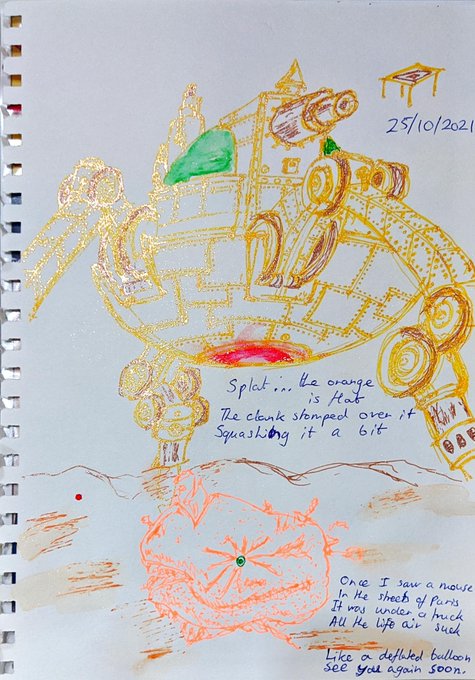 25/10/2021
Splat... the orange
is flat
The clank stomped over it
Squashing it a bit
Once I saw a mouse
In the streets of Paris
It was under a truck
All the life air suck
Like a deflated balloon
See you again soon.